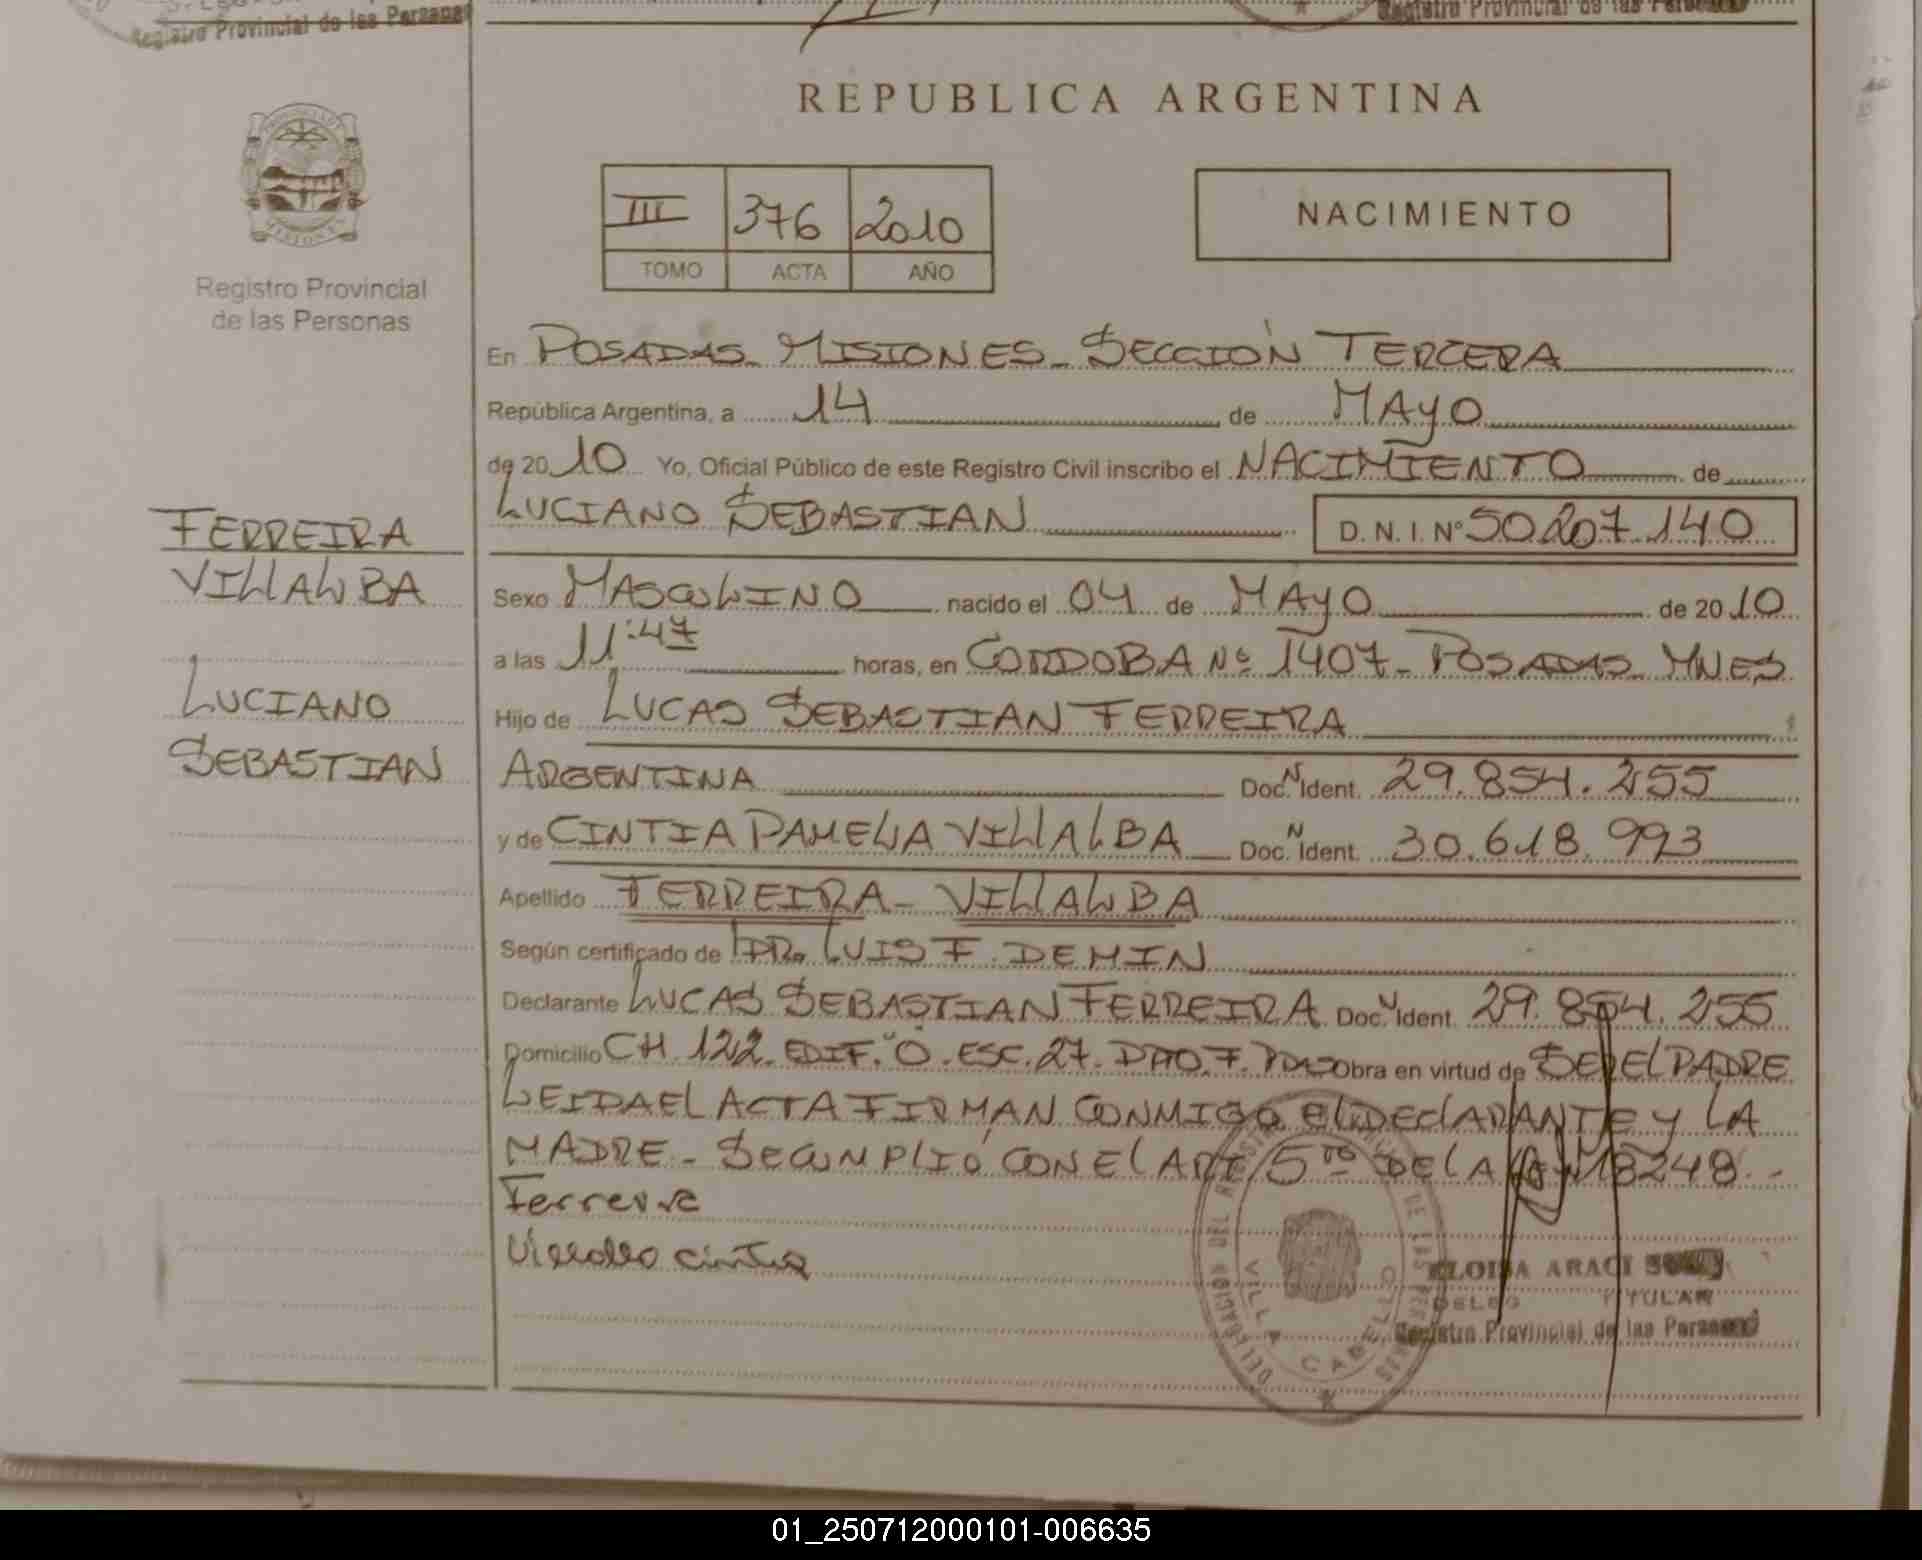 Registro Provincial de las Personas
Registro Provincial de las Personas
REPUBLICA ARGENTINA
PROVINCIA DE MISIONES
Registro Provincial
de las Personas
III 376 2010
TOMO ACTA AÑO
NACIMIENTO
En POSADAS - MISIONES - SECCIÓN TERCERA
República Argentina, a 14 de MAYO
de 2010 Yo, Oficial Público de este Registro Civil inscribo el NACIMIENTO de
LUCIANO SEBASTIAN D.N.I. Nº 50207.140
FERREIRA
VILLALBA
LUCIANO
SEBASTIAN
Sexo MASCULINO nacido el 04 de MAYO de 2010
a las 11:47 horas, en CORDOBA Nº 1407 - POSADAS - MNES
Hijo de LUCAS SEBASTIAN FERREIRA
ARGENTINA Doc. N Ident. 29.854.255
y de CINTIA PAMELA VILLALBA Doc. N Ident. 30.618.993
Apellido FERREIRA - VILLALBA
Según certificado de DR. LUIS F. DEMIN
Declarante LUCAS SEBASTIAN FERREIRA Doc. N Ident. 29.854.255
Domicilio CH. 122. EDIF. "O. ESC. 27. DPTO. F. PDAS Obra en virtud de SER EL PADRE
LEIDA EL ACTA FIRMAN CONMIGO EL DECLARANTE Y LA
MADRE - SE CUMPLIÓ CON EL ART. 5to DE LA LEY 18248 -
Ferreira
Villalba Cintia
DELEGACION DEL REGISTRO PROVINCIAL DE LAS PERSONAS
VILLA CABELLO
ELOISA ARACI
DELEG TITULAR
Registro Provincial de las Personas
01_250712000101-006635